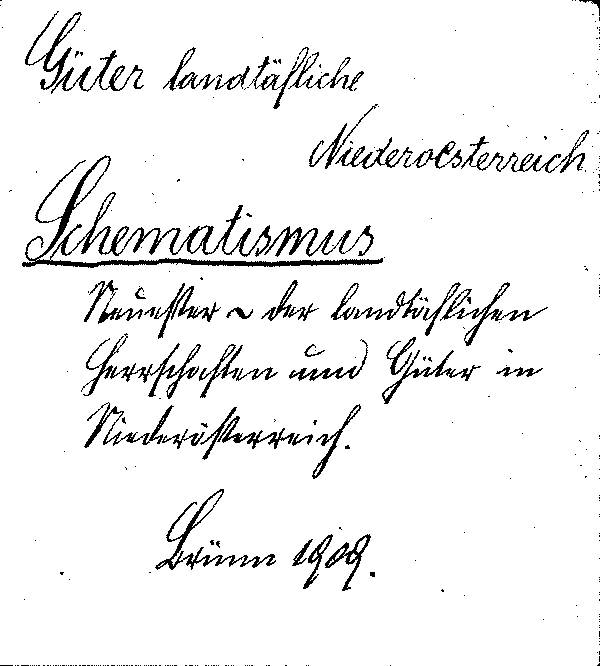 Güter landtäfliche
Niederoesterreich
Schematismus
Neuester ~ der landtäflichen
Herrschaften und Güter in
Niederösterreich.
Brünn 1909.